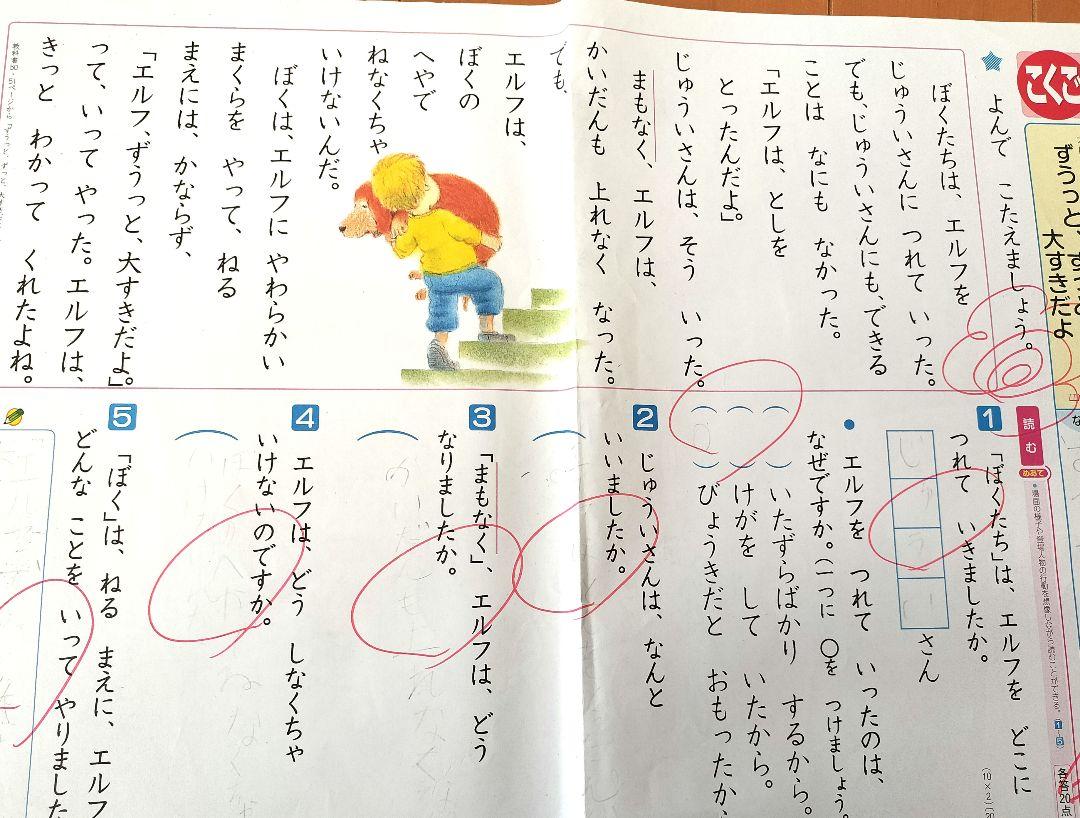 こくご
ずうっと、ずっと
大すきだよ
よんで こたえましょう。
ぼくたちは、エルフを
じゅういさんに つれて いった。
でも、じゅういさんにも、できる
ことは なにも なかった。
「エルフは、としを
とったんだよ」
じゅういさんは、そう いった。
まもなく、エルフは、
かいだんも 上れなく なった。
でも、
エルフは、
ぼくの
へやで
ねなくちゃ
いけないんだ。
ぼくは、エルフに やわらかい
まくらを やって、ねる
まえには、かならず、
「エルフ、ずうっと、大すきだよ。」
って、いって やった。エルフは、
きっと わかって くれたよね。
読む
めあて
●場面の様子や登場人物の行動を想像しながら読むことができる。1~5
各答20点
1 「ぼくたち」は、エルフを どこに
つれて いきましたか。
じゅうい
さん
(10×2)(20
● エルフを つれて いったのは、
なぜですか。(一つに ○を つけましょう。
いたずらばかり するから。
けがを して いたから。
びょうきだと おもったか
2 じゅういさんは、なんと
いいましたか。
3 「まもなく」、エルフは、どう
なりましたか。
4 エルフは、どう しなくちゃ
いけないのですか。
5 「ぼく」は、ねる まえに、エルフ
どんな ことを いって やりました